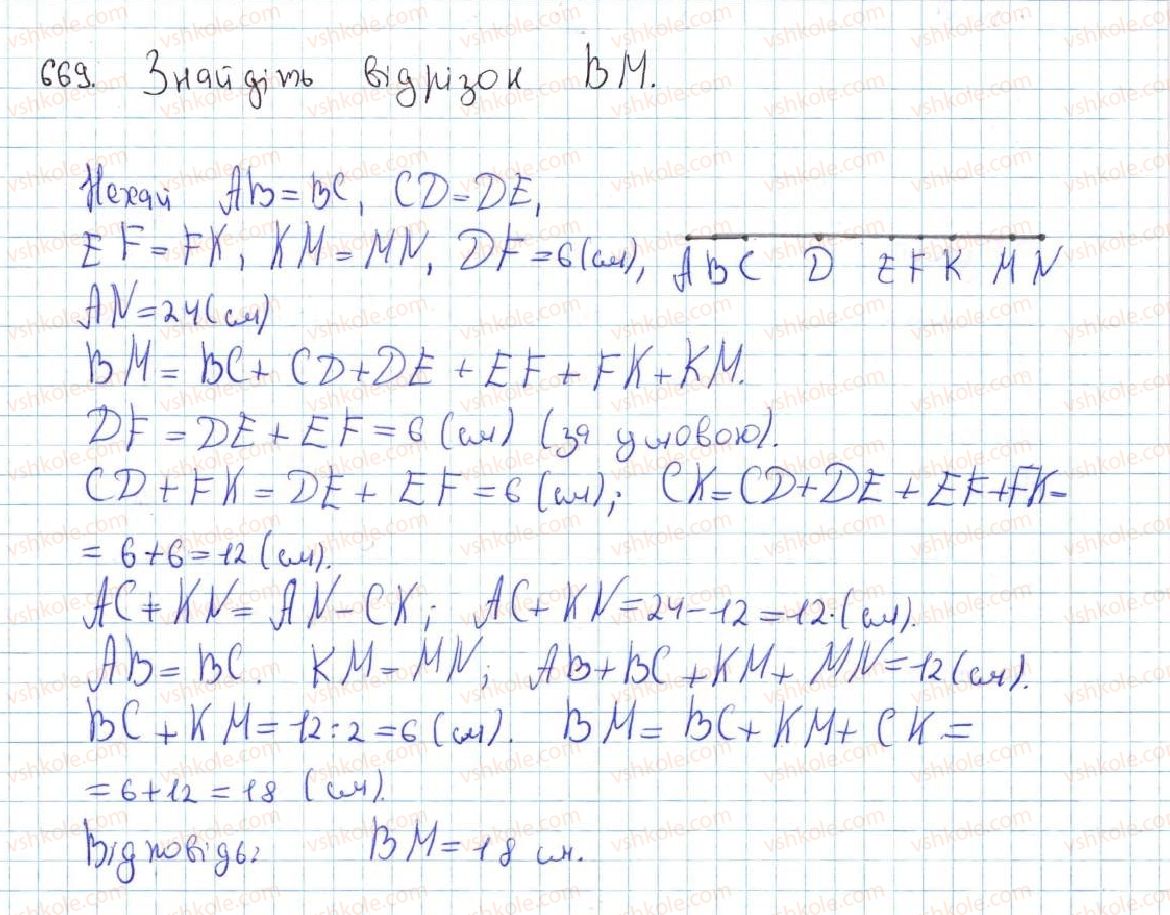 669. Знайдіть відрізок BM.
Нехай AB = BC, CD = DE,
EF = FK, KM = MN, DF = 6 (см),
A B C D E F K M N
AN = 24 (см)
BM = BC + CD + DE + EF + FK + KM.
DF = DE + EF = 6 (см) (за умовою).
CD + FK = DE + EF = 6 (см); CK = CD + DE + EF + FK =
= 6 + 6 = 12 (см).
AC + KN = AN - CK; AC + KN = 24 - 12 = 12 (см).
AB = BC. KM = MN; AB + BC + KM + MN = 12 (см).
BC + KM = 12 : 2 = 6 (см). BM = BC + KM + CK =
= 6 + 12 = 18 (см).
Відповідь: BM = 18 см.
vshkole.com